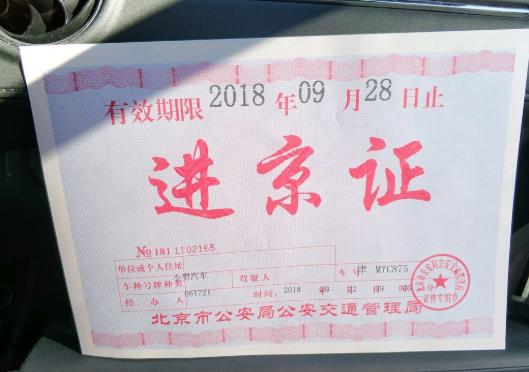 有效期限 2018 年 09 月 28 日止
进京证
No 181 1102165
单位或个人住址
车种号牌种类 小型汽车 驾驶人 车号 津 MYC875
经办人 061721 时间: 2018 年 9 月 2
北京市公安局公安交通管理局